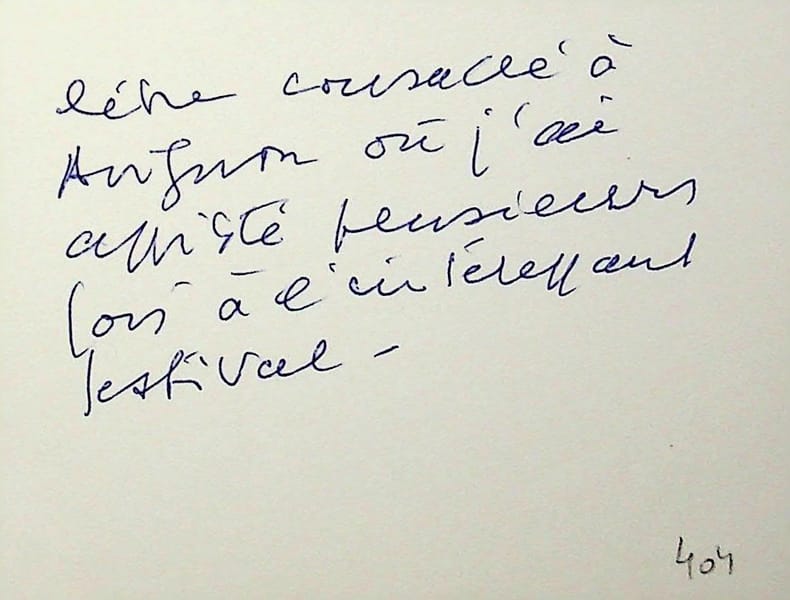 l'être consacré à
Avignon où j'ai
assisté plusieurs
fois à l'intéressant
festival -
404